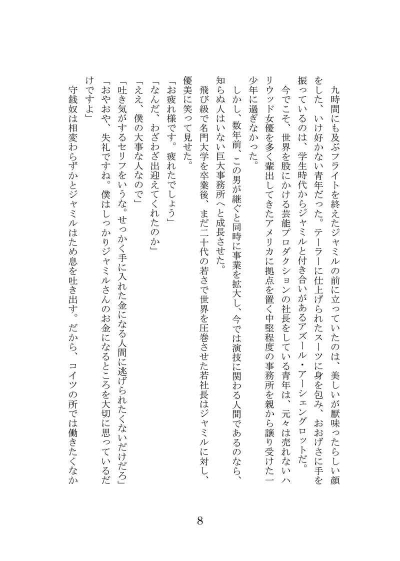 九時間にも及ぶフライトを終えたジャミルの前に立っていたのは、美しいが厭味ったらしい顔
をした、いけ好かない青年だった。テーラーに仕上げられたスーツに身を包み、おおげさに手を
振っているのは、学生時代からジャミルと付き合いがあるアズール・アーシェングロットだ。
今でこそ、世界を股にかける芸能プロダクションの社長をしている青年は、元々は売れないハ
リウッド女優を多く輩出してきたアメリカに拠点を置く中堅程度の事務所を親から譲り受けた一
少年に過ぎなかった。
しかし、数年前、この男が継ぐと同時に事業を拡大し、今では演技に関わる人間であるのなら、
知らぬ人はいない巨大事務所へと成長させた。
飛び級で名門大学を卒業後、まだ二十代の若さで世界を圧巻させた若社長はジャミルに対し、
優美に笑って見せた。
「お疲れ様です。疲れたでしょう」
「なんだ、わざわざ出迎えてくれたのか」
「ええ、僕の大事な人なので」
「吐き気がするセリフをいうな。せっかく手に入れた金になる人間に逃げられたくないだけだろ」
「おやおや、失礼ですね。僕はしっかりジャミルさんのお金になるところを大切に思っているだ
けですよ」
守銭奴は相変わらずかとジャミルはため息を吐き出す。だから、コイツの所では働きたくなか
8